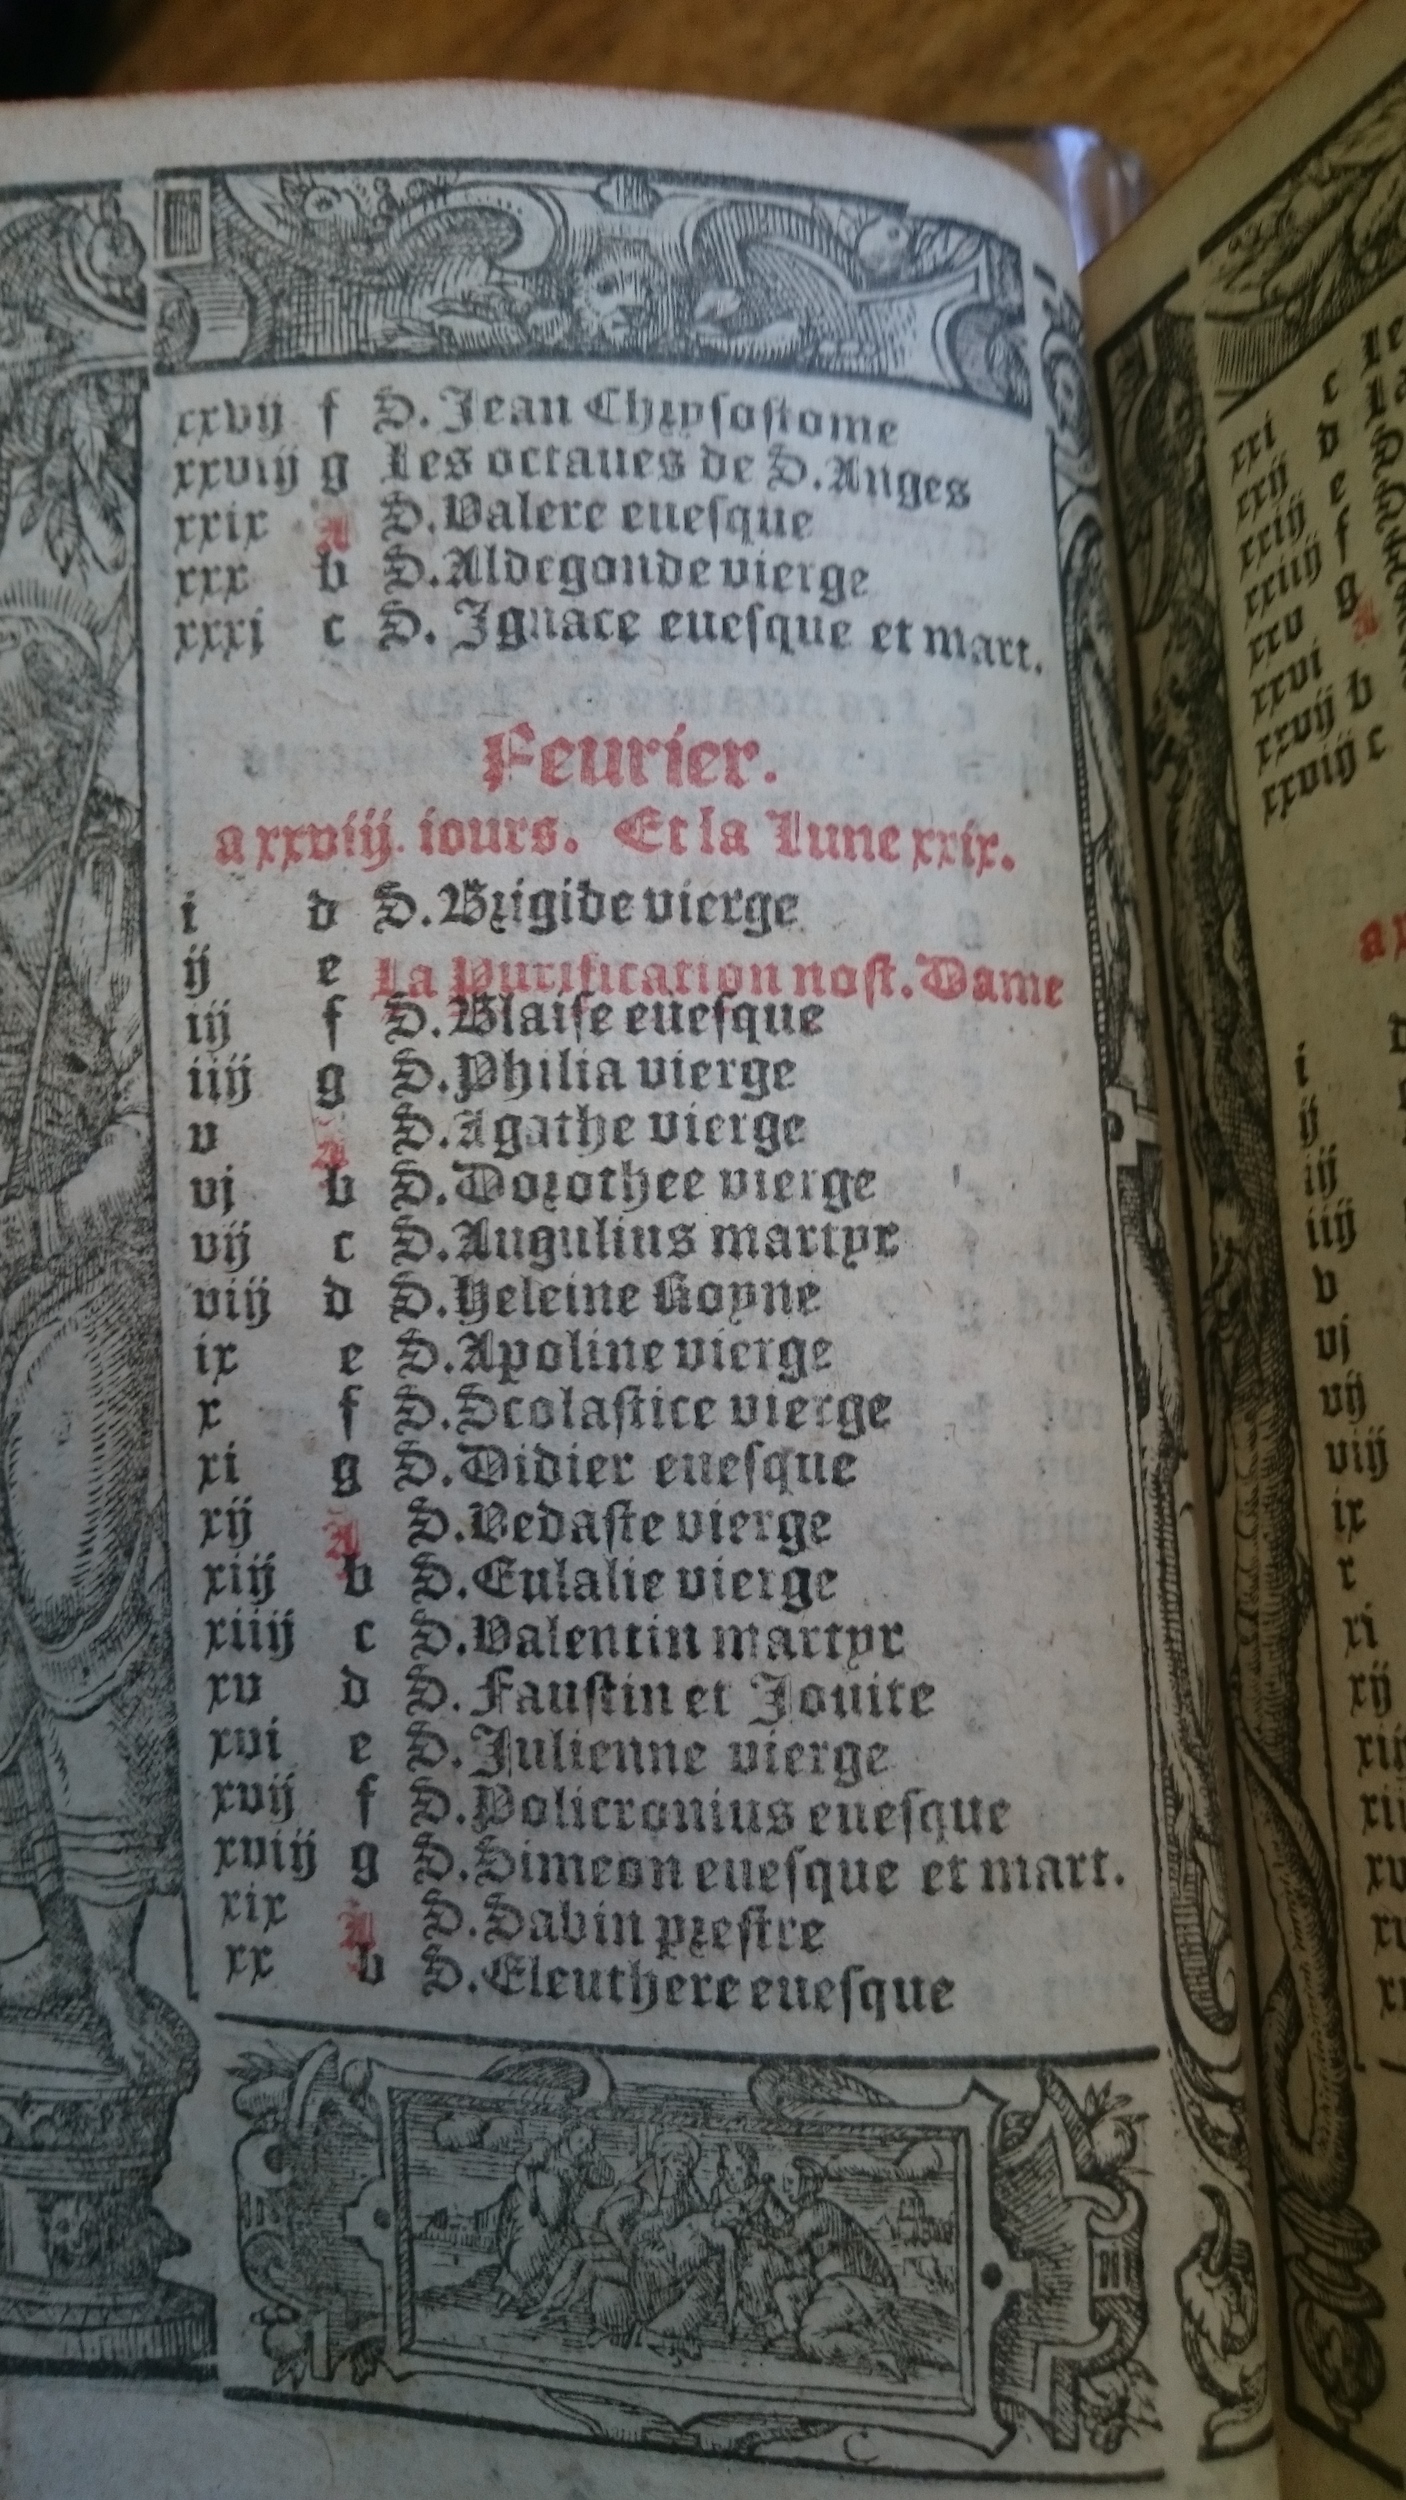 xxvij f S. Jean Chrysostome
xxviij g Les octaues de S. Anges
xxix A S. Valere euesque
xxx b S. Aldegonde vierge
xxxj c S. Ignace euesque et mart.
Feurier.
a xxviij. iours. Et la Lune xxix.
i d S. Brigide vierge
ij e La Purification nost. Dame
iij f S. Blaise euesque
iiij g S. Philia vierge
v A S. Agathe vierge
vj b S. Dorothee vierge
vij c S. Augulius martyr
viij d S. Heleine Royne
ix e S. Apoline vierge
x f S. Scolastice vierge
xi g S. Didier euesque
xij A S. Vedaste vierge
xiij b S. Eulalie vierge
xiiij c S. Valentin martyr
xv d S. Faustin et Jouite
xvi e S. Julienne vierge
xvij f S. Policronius euesque
xviij g S. Simeon euesque et mart.
xix A S. Sabin prestre
xx b S. Eleuthere euesque
C
xxi c
xxij d
xxiij e
xxiiij f
xxv g
xxvi A
xxvij b
xxviij c
i
ij
iij
iiij
v
vj
vij
viij
ix
x
xi
xij